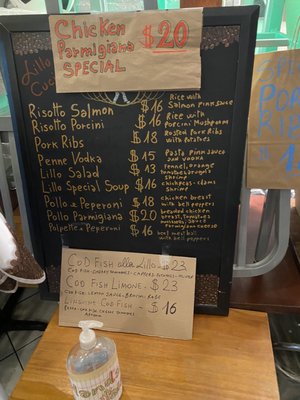 Chicken
Parmigiana $20
Special
Lillo
Cu
Risotto Salmon $16 Rice with Salmon Pink sauce
Risotto Porcini $16 Rice with Porcini Mushrooms
Pork Ribs $18 Roasted Pork Ribs with Potatoes
Penne Vodka $15 Pasta Pink Sauce and vodka
Lillo Salad $13 Fennel, orange tomatoes, shrimp
Lillo Special Soup $16 chickpeas - clams shrimp
Pollo e Peperoni $18 chicken breast with bell peppers
Pollo Parmigiana $20 breaded chicken breast, tomatoes sauce, parmigiano cheese
Polpette e Peperoni $16 beef meatball with bell peppers
Cod Fish alla Lillo $23
Cod Fish - Cherry Tomatoes - Capers - Olives
Cod Fish Limone $23
Cod Fish - Lemon Sauce
Linguine Cod Fish $16
PO
RIBS
$1